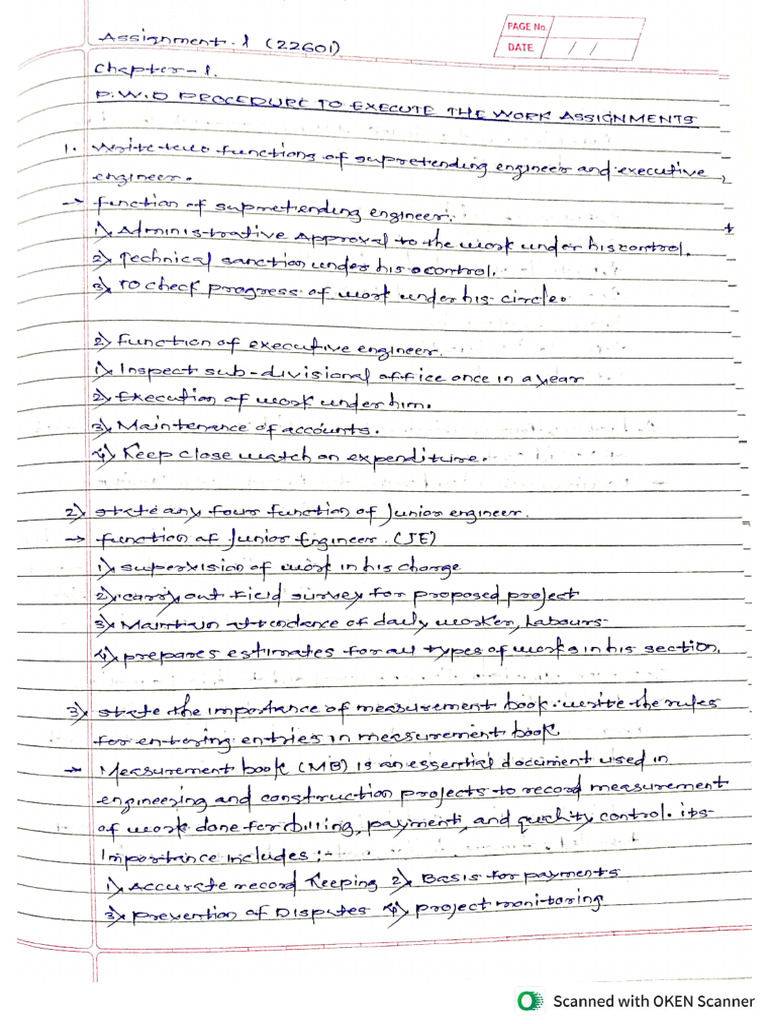 PAGE No.
DATE / /
Assignment.1 (22601)
Chapter-1.
P.W.D PROCEDURE TO EXECUTE THE WORK ASSIGNMENTS
1. Write two functions of supretending engineer and executive
engineer.
→ function of supretending engineer.
1) Administrative Approval to the work under his control.
2) Technical sanction under his control.
3) To check progress of work under his circle.
2) Function of executive engineer.
1) Inspect sub-divisional office once in a year
2) Execution of work under him.
3) Maintenance of accounts.
4) Keep close watch on expenditure.
2) state any four function of Junior engineer.
→ function of Junior Engineer. (JE)
1) supervision of work in his charge
2) carry out field survey for proposed project
3) Maintain attendance of daily worker, Labours
4) prepares estimates for all types of works in his section.
3) state the importance of measurement book. write the rules
for entering entries in measurement book
→ Measurement book (MB) is an essential document used in
engineering and construction projects to record measurement
of work done for billing, payment, and quality control. its
Importance includes :-
1) Accurate record Keeping 2) Basis for payments
3) prevention of Disputes 4) project monitoring
Scanned with OKEN Scanner